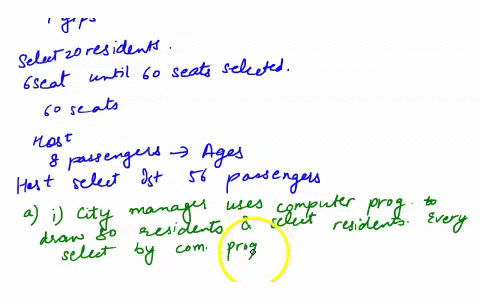 Select 20 residents.
6 seat until 60 seats selected.
60 seats
Host
8 passengers → Ages
Host select 1st 56 passengers
a) i) City manager uses computer prog. to
draw 80 residents & select residents. Every
select by com. prog